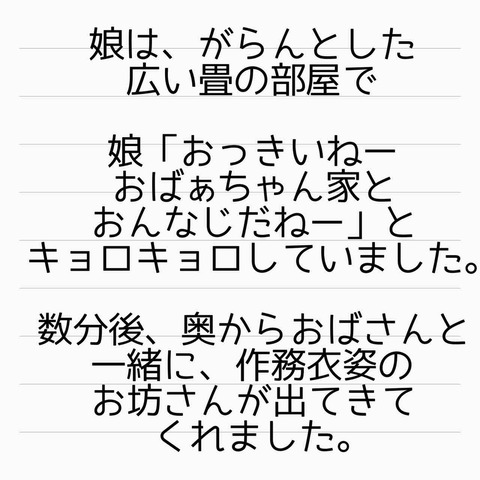 娘は、がらんとした
広い畳の部屋で
娘「おっきいねー
おばぁちゃん家と
おんなじだねー」と
キョロキョロしていました。
数分後、奥からおばさんと
一緒に、作務衣姿の
お坊さんが出てきて
くれました。